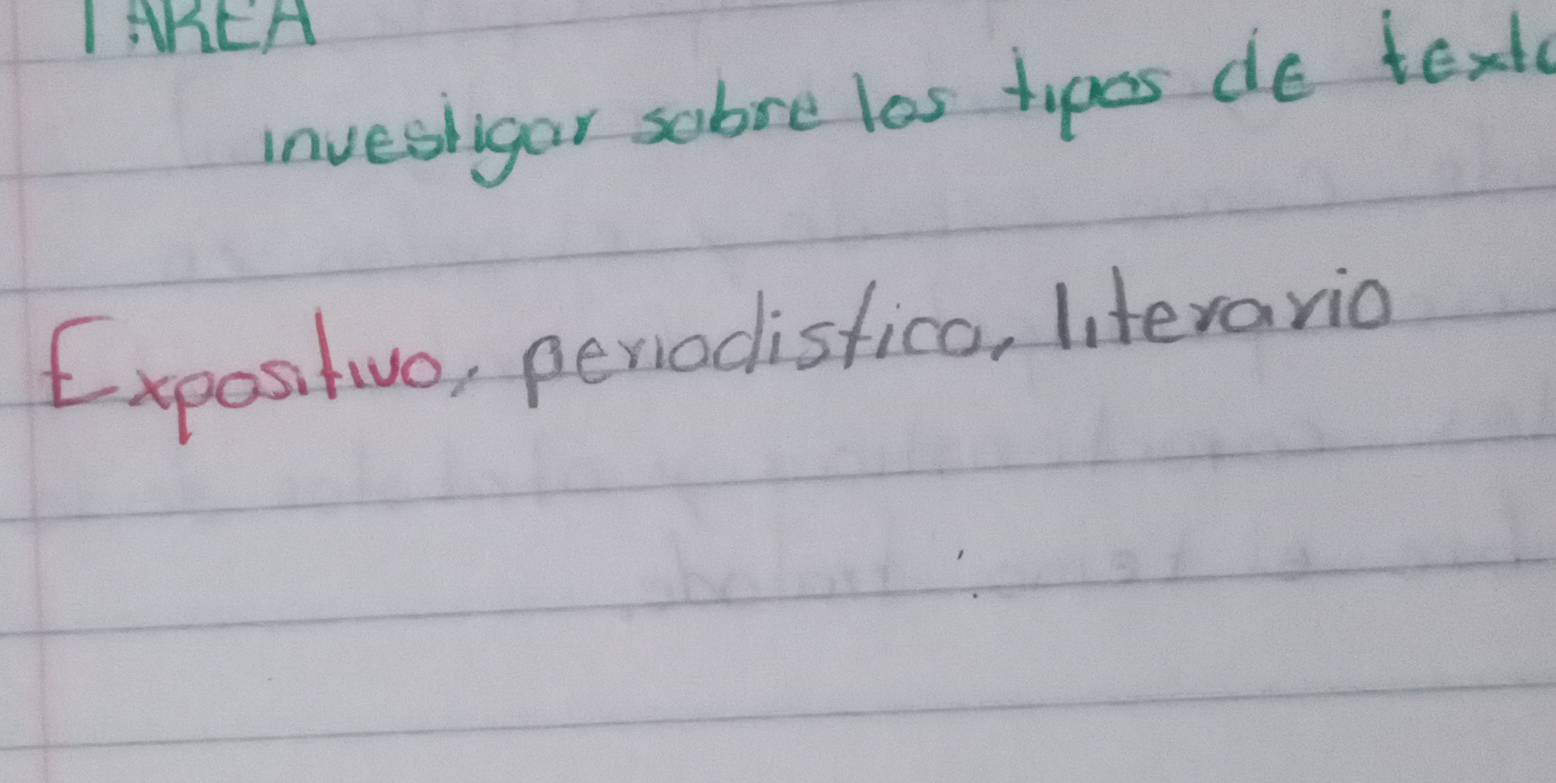 TAREA
investigar sobre los tipos de texto
Expositivo, periodistico, literario